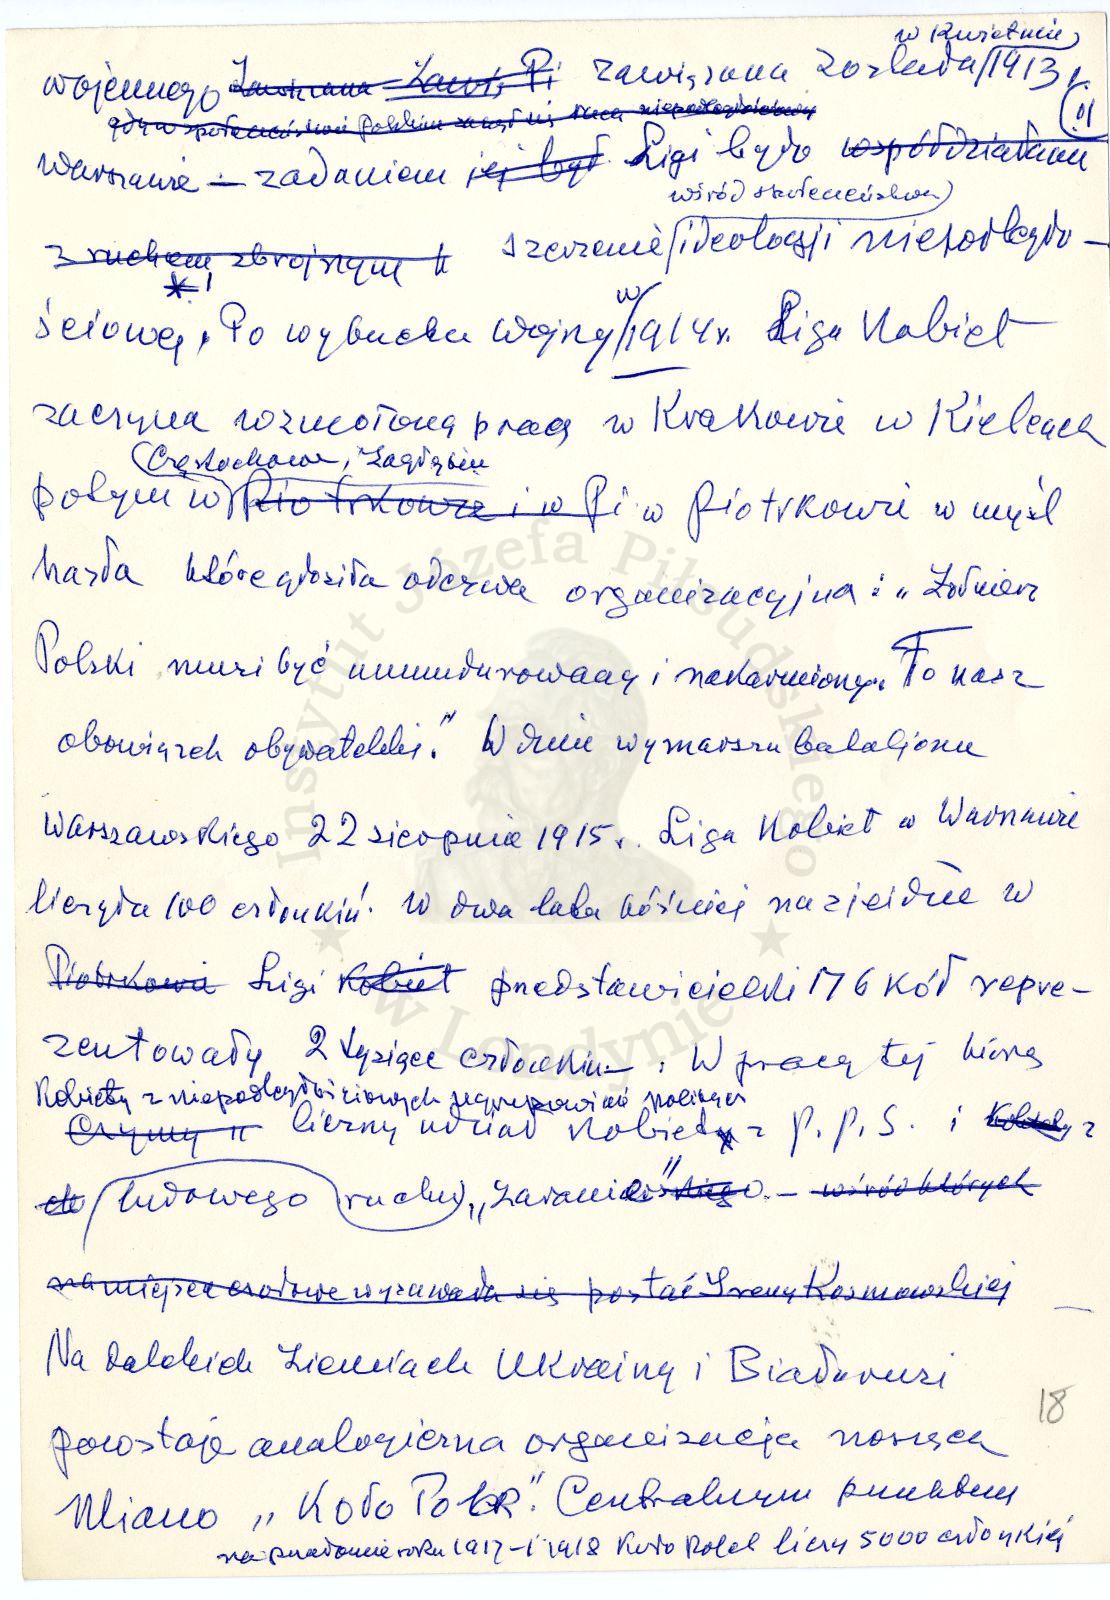 w Kwietniu
wojennego Zawiązana Zawią Pi zawiązana została 1913 r.
gdy w społeczeństwie polskim zaczął się ruch niepodległościowy
Warszawie – zadaniem jej był Ligi było współdziałanie
wśród społeczeństwa
z ruchem zbrojnym szerzenie ideologji niepodległo–
ściowej. Po wybuchu wojny w 1914 r. Liga Kobiet
zaczyna wzmożoną pracę w Krakowie w Kielcach
Częstochowie, Zagłębiu
potym w Piotrkowie i w Pi w Piotrkowie w myśl
hasła które głosiła odezwa organizacyjna: „Żołnierz
Polski musi być umundurowany i nakarmiony. To nasz
obowiązek obywatelski." W dniu wymarszu bataljonu
Warszawskiego 22 sierpnia 1915 r. Liga Kobiet w Warszawie
liczyła 100 członkiń. W dwa lata później na zjeździe w
Piotrkowie Ligi Kobiet przedstawicielki 176 Kół repre–
zentowały 2 tysiące członkiń. W pracy tej biorą
Kobiety z niepodległościowych ugrupowań
Czynny liczny udział Kobiety z P.P.S. i Kobiety z
ludowego ruchu „Zaranie" – wśród których
na miejsce czołowe wyzuwała się postać Ireny Kosmowskiej
Na dalekich Ziemiach Ukrainy i Białorusi
powstaje analogiczna organizacja nosząca
Miano „Koło Polek". Centralnym punktem
na przełomie roku 1917–i 1918 Koło Polek liczy 5000 członkiń
18
Instytut Józefa Piłsudskiego
w Londynie